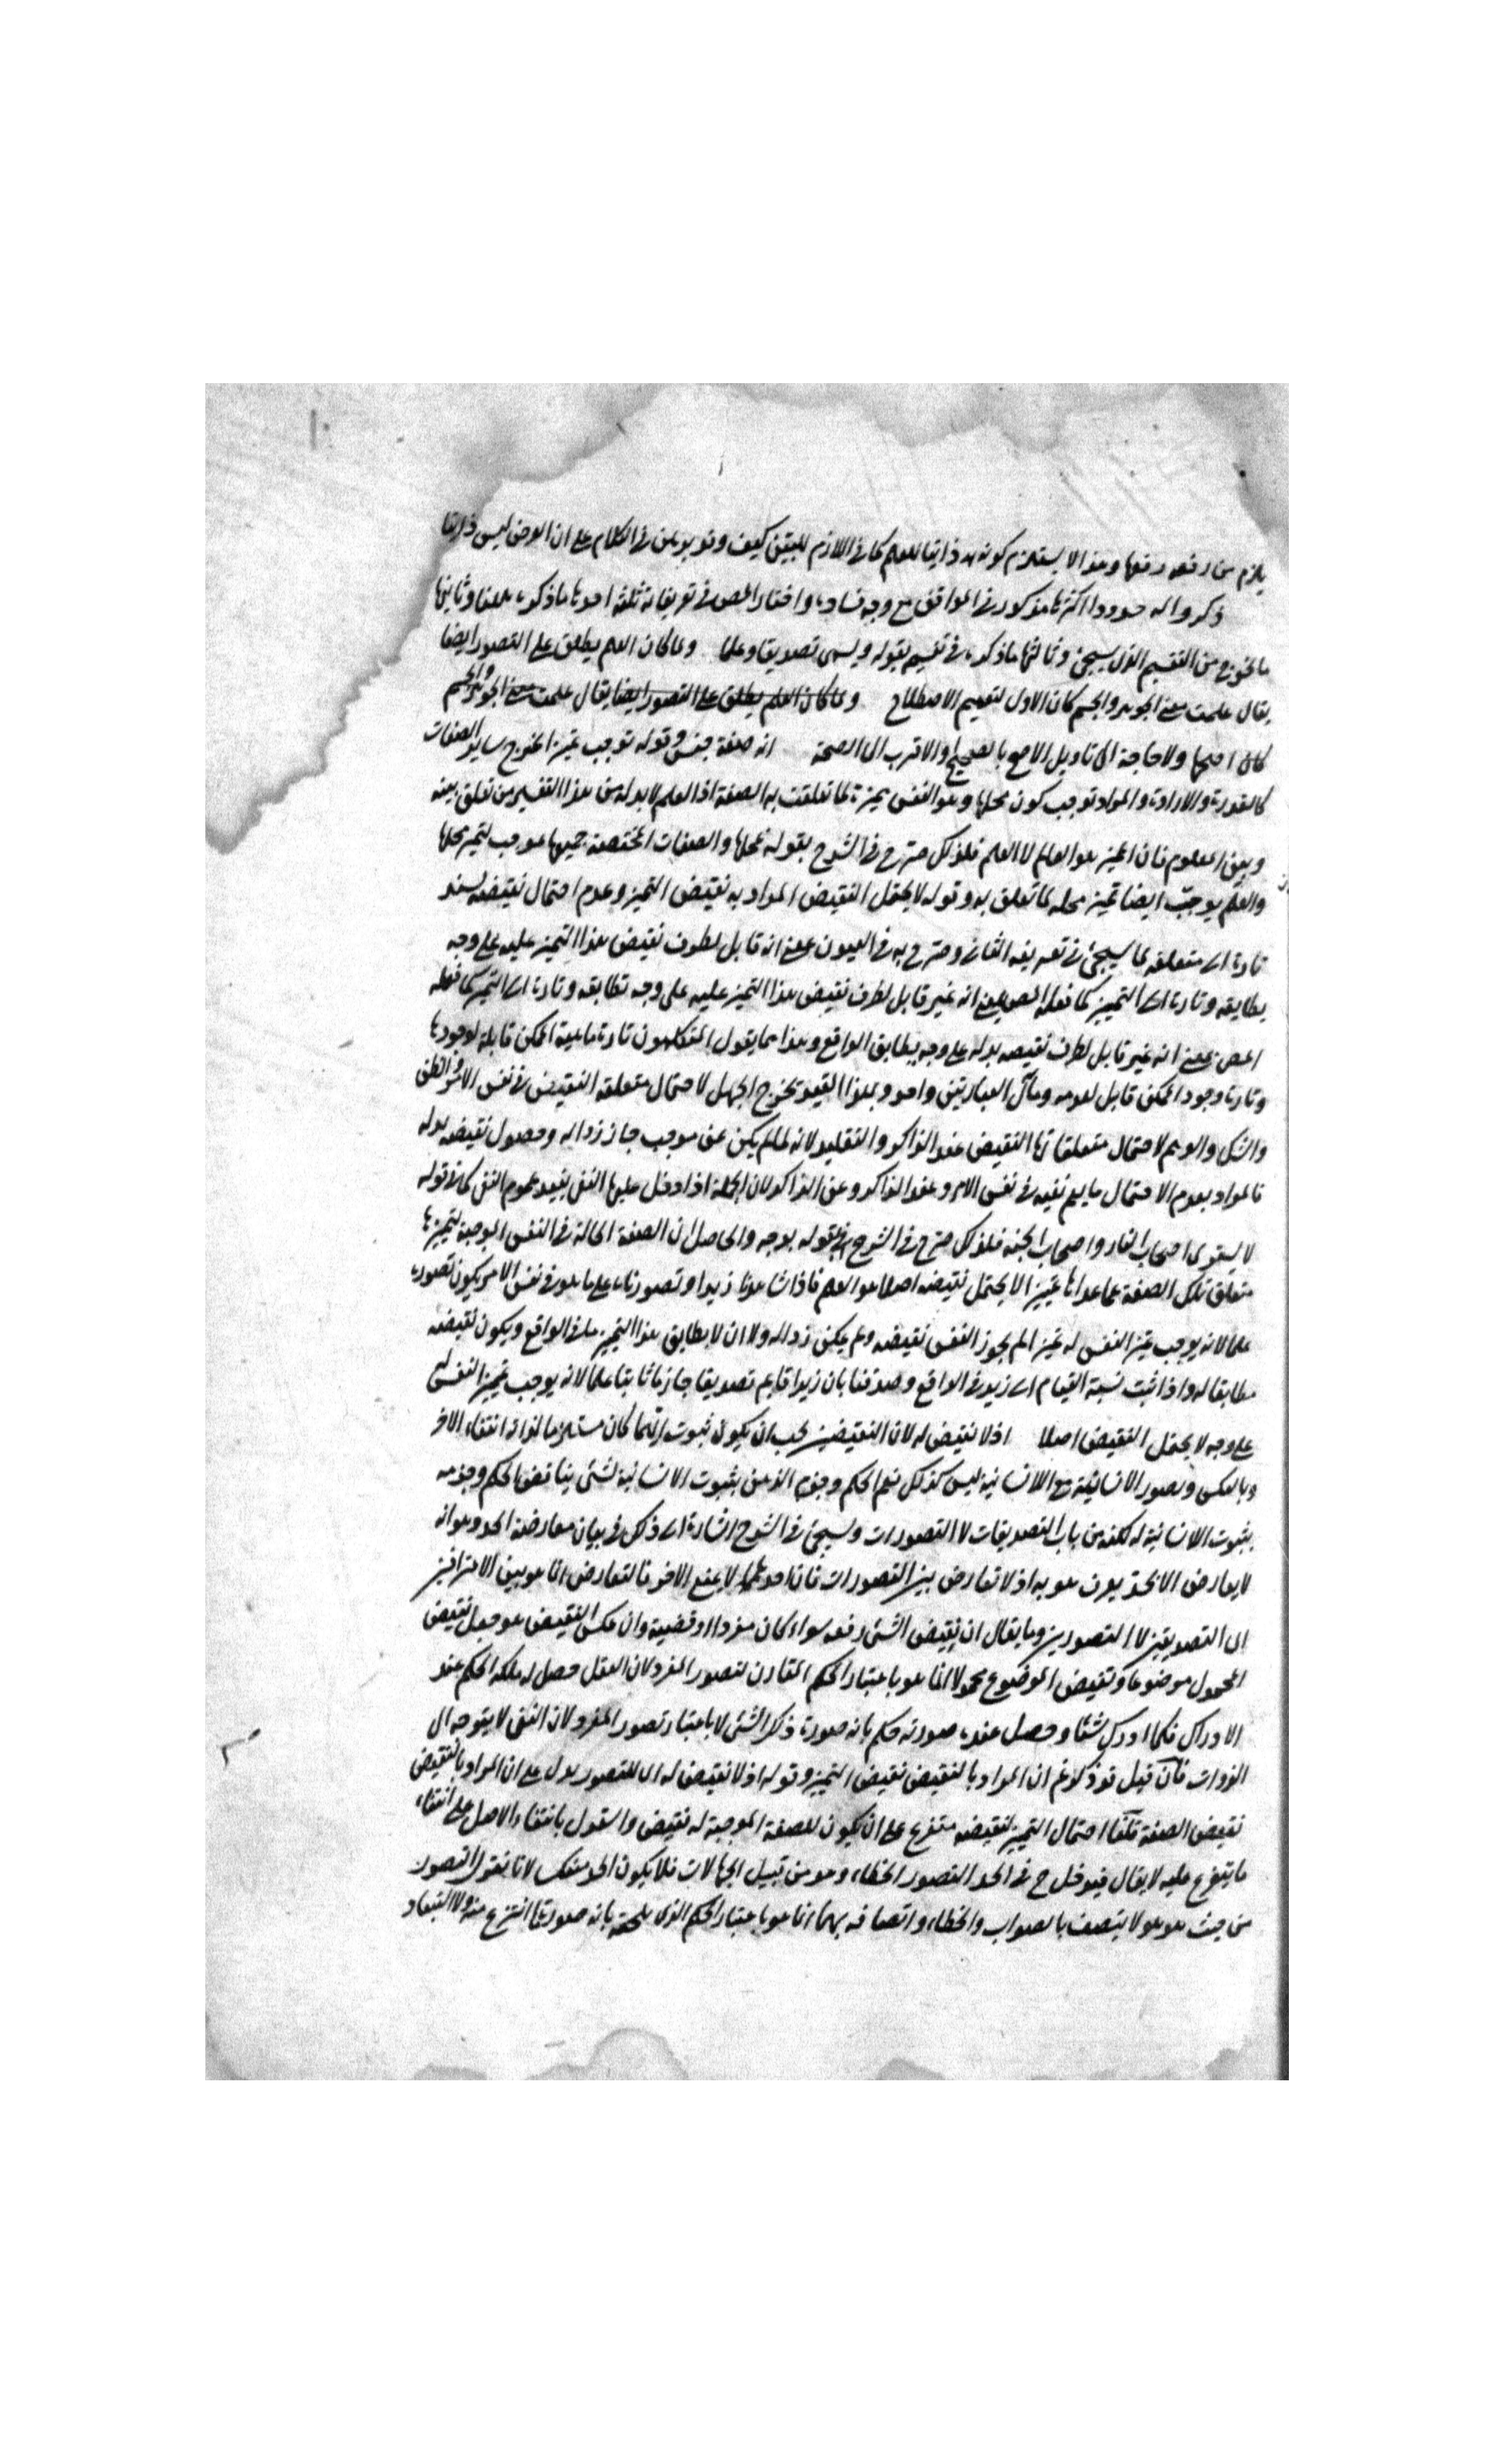 يلزم من رفعه رفعها وهذا لا يستلزم كونه ذاتيا للعلم كما في اللازم للبتين كيف وقد برهن في الكلام على ان العرض ليس ذاتيا
ذكروا له حدودا اكثرها مذكور في المواقف مع وجه فساده واختار المص في تعريفاته ثلثة احدها ما ذكره ههنا وثانيها
ما يخرج من التقسيم الذي سيجئ وثالثها ما ذكره في تقسيم بقوله ويسمى تصديقا وعلما ولما كان العلم يطلق على التصور ايضا
يقال علمت معنى الجوهر والجسم كان الاول لتعميم الاصطلاح ولما كان العلم يطلق على التصور ايضا يقال علمت معنى الجوهر والجسم
كان اصحها ولا حاجة الى تاويل الاصح بالصحيح والاقرب الى الصحة انه صفة جنس وقوله توجب تميز الخرج ساير الصفات
كالقدرة والارادة والمراد توجب كون محلها وهو النفس مميزة لما تعلقت به الصفة اذ العلم لا بد له من هذا التفسير من تعلق بينه
وبين المعلوم فان المميز هو العالم لا العلم فلذلك صرح في الشرح بقوله لمحلها والصفات المختصة جميعها موجب لتميز محلها
والعلم يوجب ايضا تميز محله لما تعلق به وقوله لا يحتمل النقيض المراد به نقيض التميز وعدم احتمال نقيضه يسند
تارة الى متعلقه لما سيجئ في تعريفه الثاني وصرح به في العيون بمعنى انه قابل لطرف نقيض هذا التميز عليه على وجه
يطابقه وتارة الى التمييز كما فعله المص بمعنى انه غير قابل لطرف نقيض هذا التميز عليه على وجه تطابقه وتارة الى التميز كما فعله
المص بمعنى انه غير قابل لطرف نقيضه بدله على وجه يطابق الواقع وهذا كما يقول المتكلمون تارة ماهية الممكن قابلة لوجودها
وتارة وجود الممكن قابل لعدمه ومآل العبارتين واحد وبهذا القيد يخرج الجهل لاحتمال متعلقه النقيض في نفس الامر والظن
والشك والوهم لاحتمال متعلقاتها النقيض عند الذاكر والتقليد لانه لما لم يكن عن موجب جاز زواله وحصول نقيضه بدله
فالمراد بعدم الاحتمال ما يعم نفيه في نفس الامر وعند الذاكر وعن الذاكر لان الجملة اذا دخل عليها النفي يفيد عموم النفي كما في قوله
لا يستوى اصحاب النار واصحاب الجنة فلذلك صرح في الشرح بقوله بوجه والحاصل ان الصفة الحالة في النفس الموجبة لتميزها
متعلق تلك الصفة عما عداها تمييزا لا يحتمل نقيضه اصلا هو العلم فاذا شاهدنا زيدا وتصورناه على ما هو في نفس الامر يكون تصوره
علما لانه يوجب تميز النفس له تميزا لم يجوز النفس نقيضه ولم يمكن زواله ولا ان لا يطابق هذا التميز ما في الواقع ويكون نقيضه
مطابقا له واذا ثبت نسبة القيام الى زيد في الواقع وصدقنا بان زيدا قايم تصديقا جازما ثابتا علما لانه يوجب تميز النفس له
على وجه لا يحتمل النقيض اصلا اذ لا نقيض له لان النقيضين يجب ان يكون ثبوت ايهما كان مستلزما لذاته انتفاء الاخر
وبالعكس وتصور الانسانية مع اللاانسانية ليس كذلك نعم الحكم وجزم الذهن بثبوت الانسانية لشئ يناقض الحكم وجزمه
بثبوت اللاانسانية له لكنه من باب التصديقات لا التصورات وسيجئ في الشرح اشارة الى ذلك في بيان معارضة الحد وهو انه
لا يعارض الا بحد يعرف هو به اذ لا تعارض بين التصورات فان احدهما لا يمنع الاخر فالتعارض انما هو بين الاعترافين
اى التصديقين لا التصورين وما يقال ان نقيض الشئ رفعه سواء كان مفردا او قضية وان عكس النقيض هو جعل نقيض
المحمول موضوعا ونقيض الموضوع محمولا انما هو باعتبار الحكم المقارن لتصور المفرد لان العقل حصل له ملكة الحكم عند
الادراك فكلما ادرك شيئا وحصل عنده صورته حكم بانه صورة ذلك الشئ لا باعتبار تصور المفرد لان النفى لا يتوجه الى
الذوات فان قيل قد ذكرتم ان المراد بالنقيض نقيض التميز وقوله اذ لا نقيض له اى للتصور يدل على ان المراد بالنقيض
نقيض الصفة قلنا احتمال التميز لنقيضه متفرع على ان يكون للصفة الموجبة له نقيض واستدل بانتفاء الاصل على انتفاء
ما يتفرع عليه لا يقال فيدخل ح في الحد التصور الخطاء وهو من قبيل الجهالات فلا يكون الحد منعكسا لانا نقول التصور
من حيث هو هو لا يتصف بالصواب والخطاء واتصافه بهما انما هو باعتبار الحكم الذى يلحقه بانه صورة لما انتزع منه ولا اعتبار